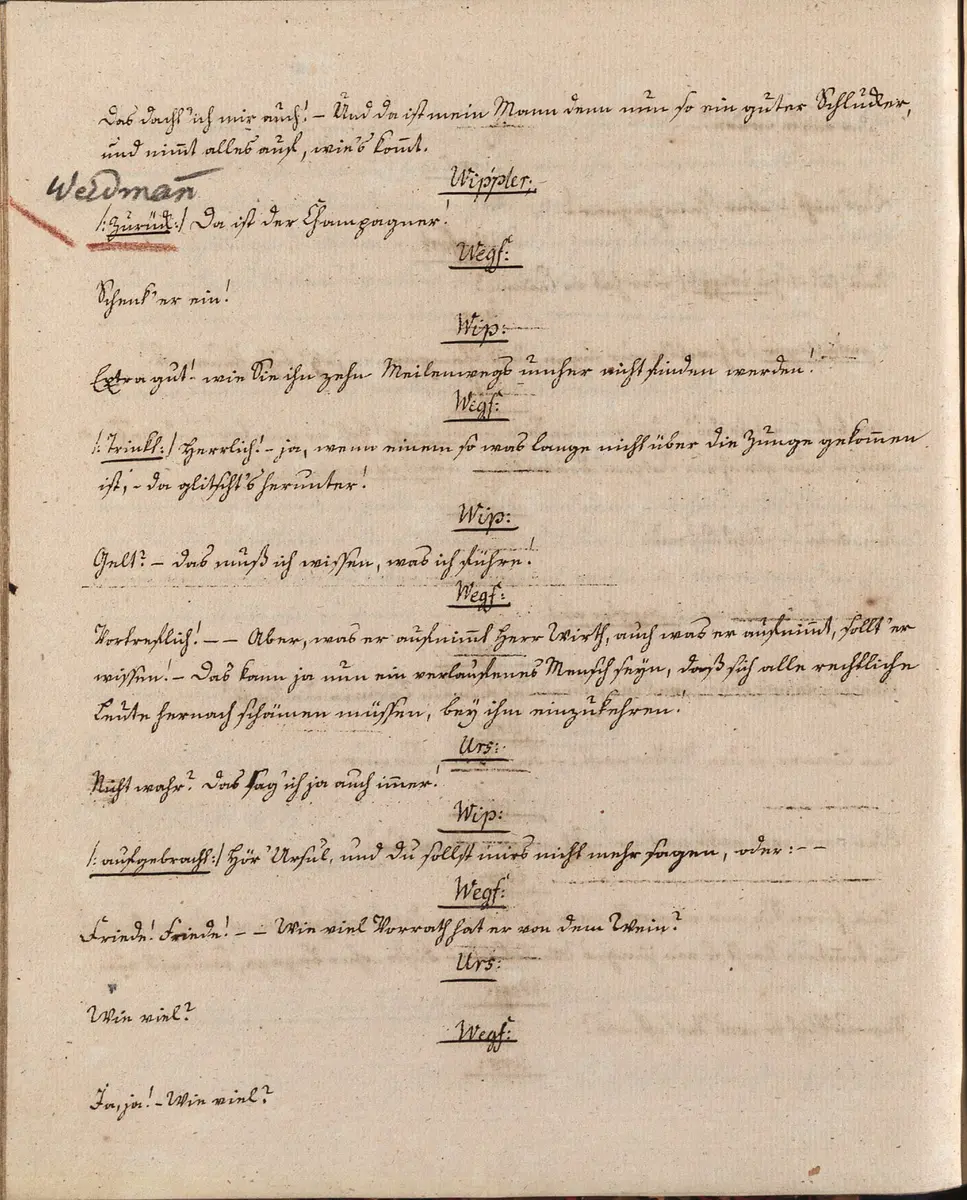 Das dacht' ich mir auch! – Und da ist mein Mann denn nun so ein guter Schlucker,
und nimmt alles auf, wie's kommt.
Wippler:
Weidman̄
/: Zurück :/ Da ist der Champagner!
Wegf:
Schenk' er ein!
Wip:
Extra gut! wie Sie ihn zehn Meilenwegs umher nicht finden werden!
Wegf:
/: Trinkt :/ Herrlich! – ja, wenn einem so was lange nicht über die Zunge gekommen
ist, – da glitscht's herunter!
Wip:
Gelt? – das muß ich wissen, was ich führe!
Wegf:
Vortreflich! – – Aber, was er aufnimmt Herr Wirth, auch was er aufnimmt, sollt' er
wissen! – Das kann ja nun ein verlaufenes Mensch seyn, daß sich alle rechtliche
Leute hernach schämen müssen, bey ihm einzukehren!
Urs:
Nicht wahr? Das sag' ich ja auch immer!
Wip:
/: aufgebracht :/ Hör' Ursul, und du sollst mirs nicht mehr sagen, oder: – –
Wegf:
Friede! Friede! – – Wie viel Vorrath hat er von dem Wein?
Urs:
Wie viel?
Wegf:
Ja, ja! – Wie viel?